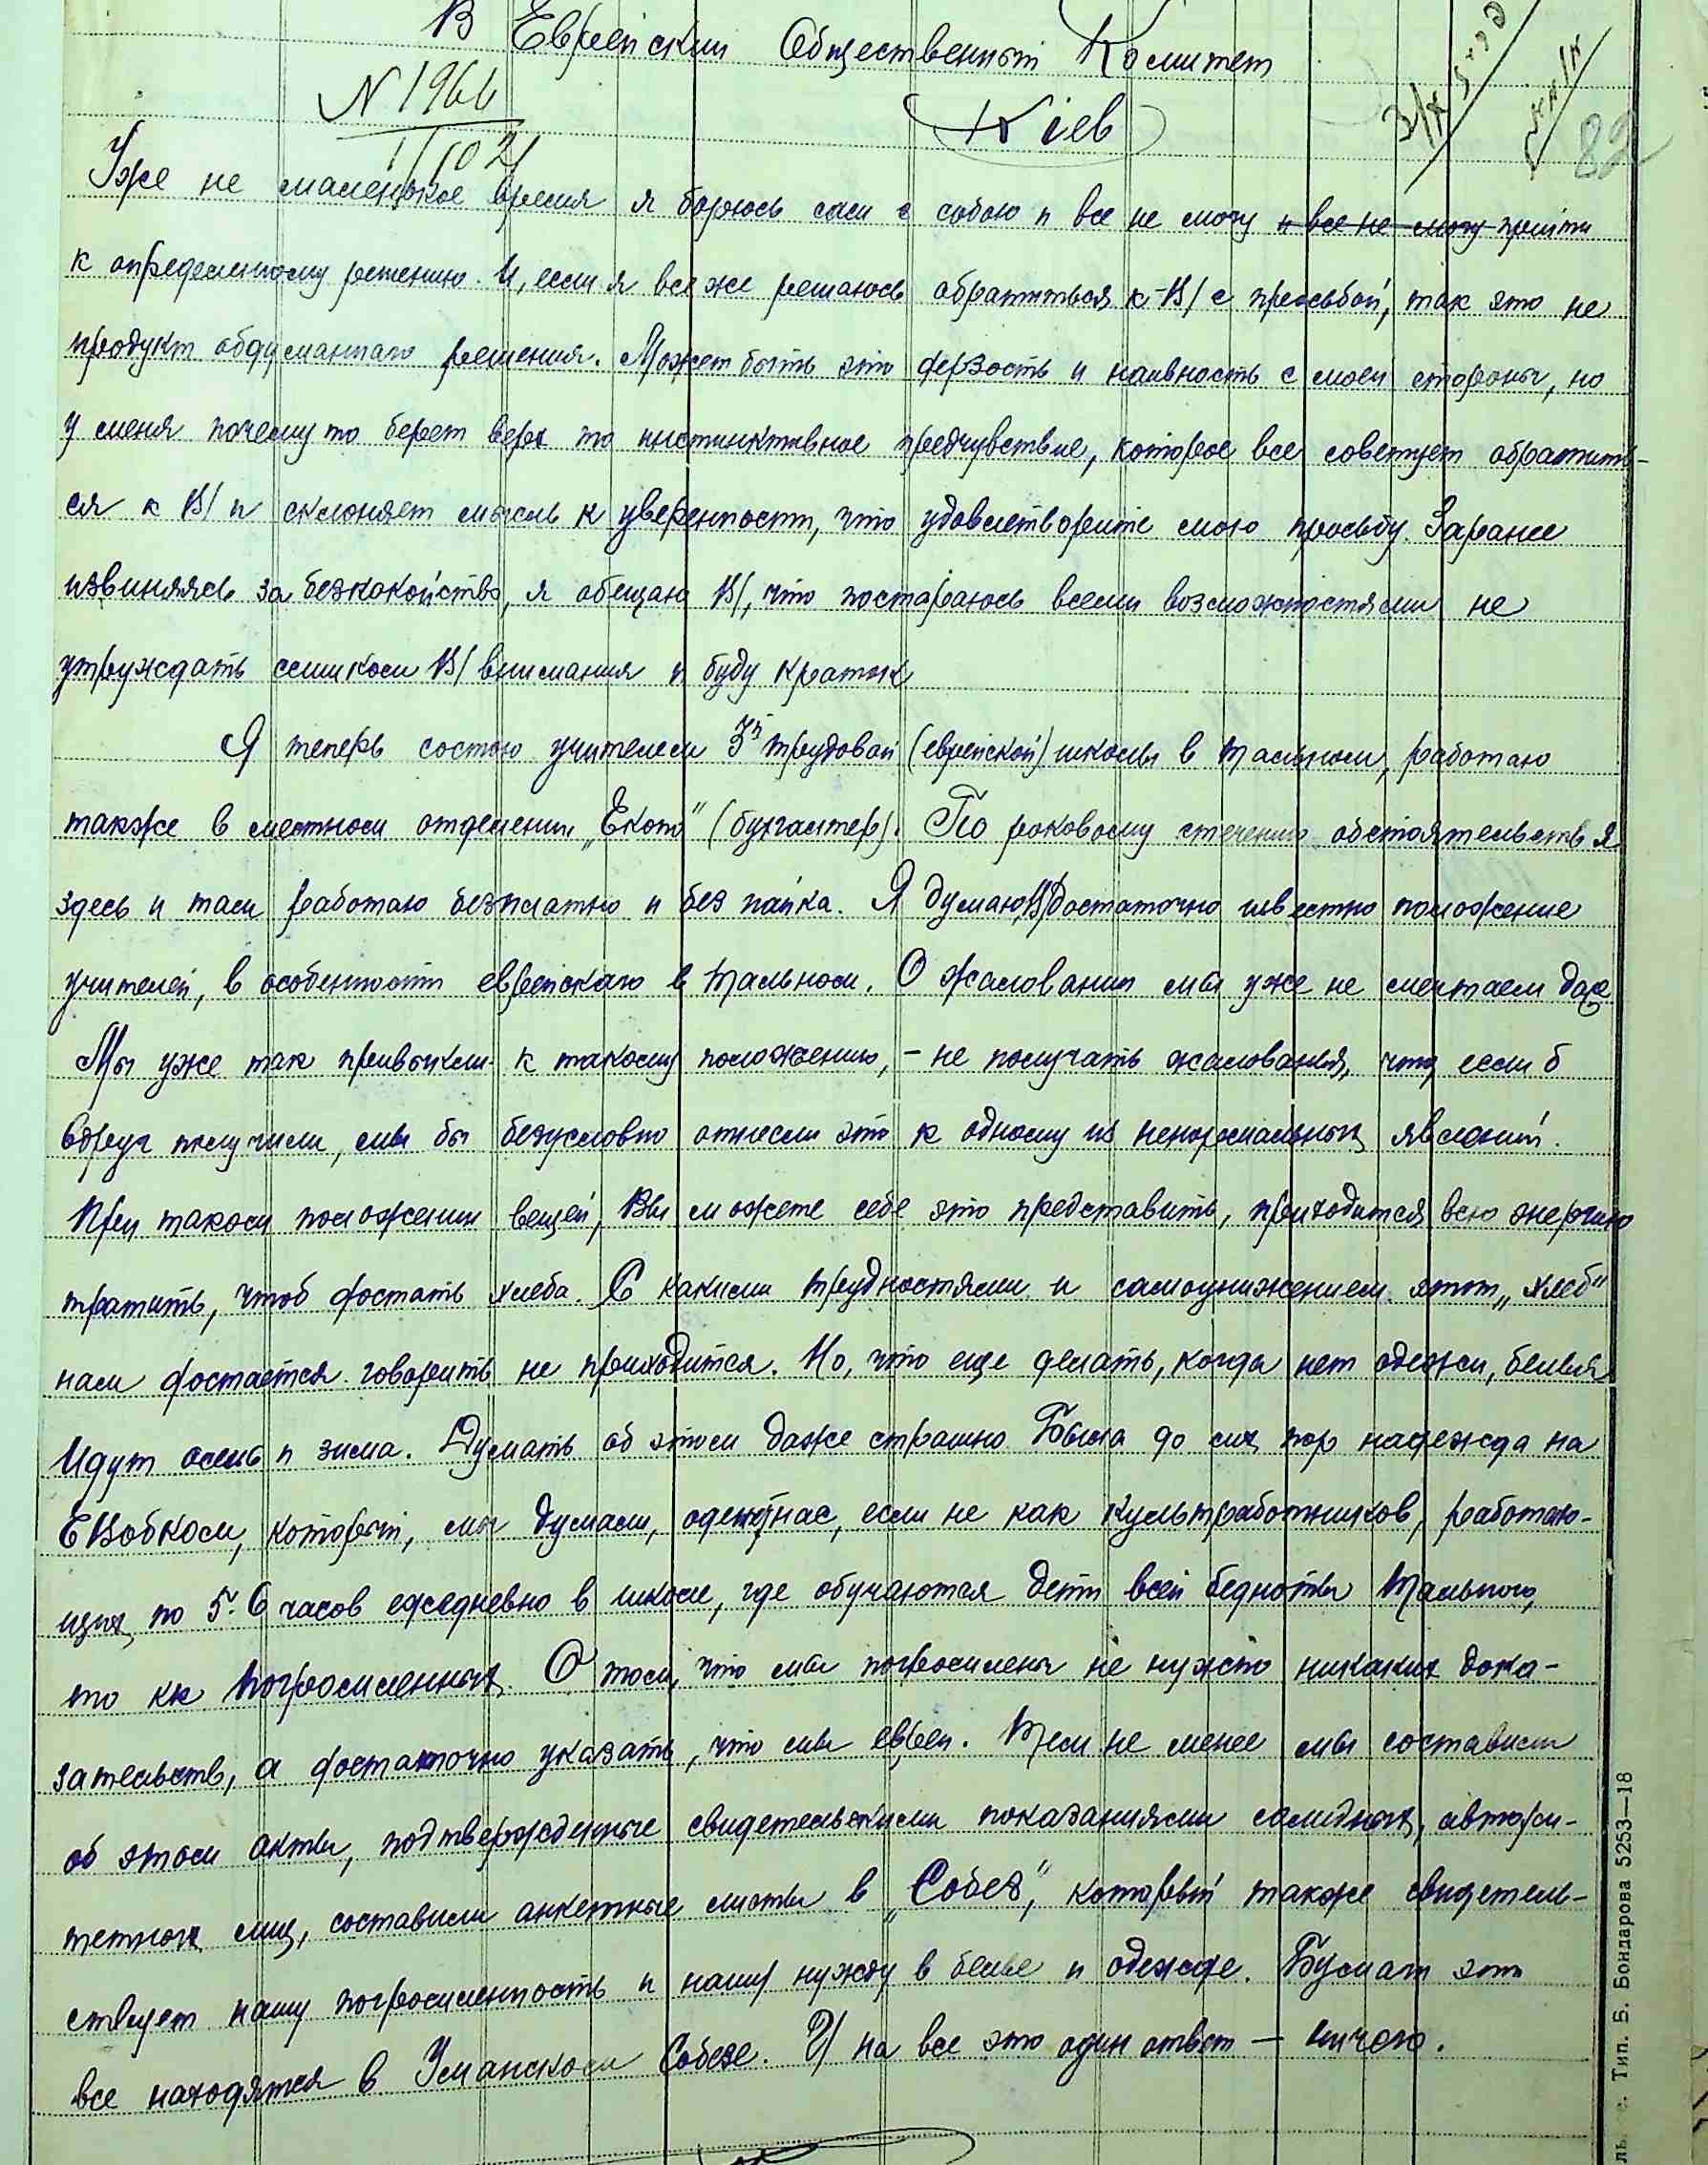 В Еврейский Общественный Комитет
N 1966
Кіев
82
Уже не маленькое время я борюсь сам с собою и все не могу и все не могу прийти
к определенному решению. И, если я все же решаюсь обратиться к В/ с просьбой, так это не
продукт обдуманнаго решения. Может быть это дерзость и наивность с моей стороны, но
у меня почему то берет верх то инстинктивное предчувствие, которое все советует обратить-
ся к В/ и склоняет мысль к уверенности, что удовлетворите мою просьбу. Заранее
извиняясь за безпокойство, я обещаю В/, что постараюсь всеми возможностями не
утруждать слишком В/ внимания и буду краток
Я теперь состою учителем 3й трудовой (еврейской) школы в Тальном, работаю
также в местном отделении „Екопо" (бухгалтер). По роковому стечению обстоятельств я
здесь и там работаю безплатно и без пайка. Я думаю, В/ достаточно известно положение
учителей, в особенности еврейскаго в Тальном. О жаловании мы уже не мечтаем даже
Мы уже так привыкли к такому положению, - не получать жалования, что, если б
вдруг получили, мы бы безусловно отнесли это к одному из ненормальных явлений.
При таком положении вещей, Вы можете себе это представить, приходится всю энергию
тратить, чтоб достать хлеба. С какими трудностями и самоунижением этот „хлеб"
нам достается говорить не приходится. Но, что еще делать, когда нет одежи, белья
Идут осень и зима. Думать об этом даже страшно Была до сих пор надежда на
ЕВобком, который, мы думали, оденет нас, если не как культработников, работаю-
щих по 5-6 часов ежедневно в школе, где обучаются дети всей бедноты Тального,
то кк погромленных. О том, что мы погромлены не нужно никаких дока-
зательств, а достаточно указать, что мы евреи. Тем не менее мы составили
об этом акты, подтвержденные свидетельскими показаниями солидных, автори-
тетных лиц, составили анкетные листы в „Собез", который также свидетель-
ствует нашу погромленность и нашу нужду в белье и одежде. Бумаги эти
все находятся в Уманском Собезе. И на все это один ответ — ничего.
Тип. Б. Бондарова 5253—18